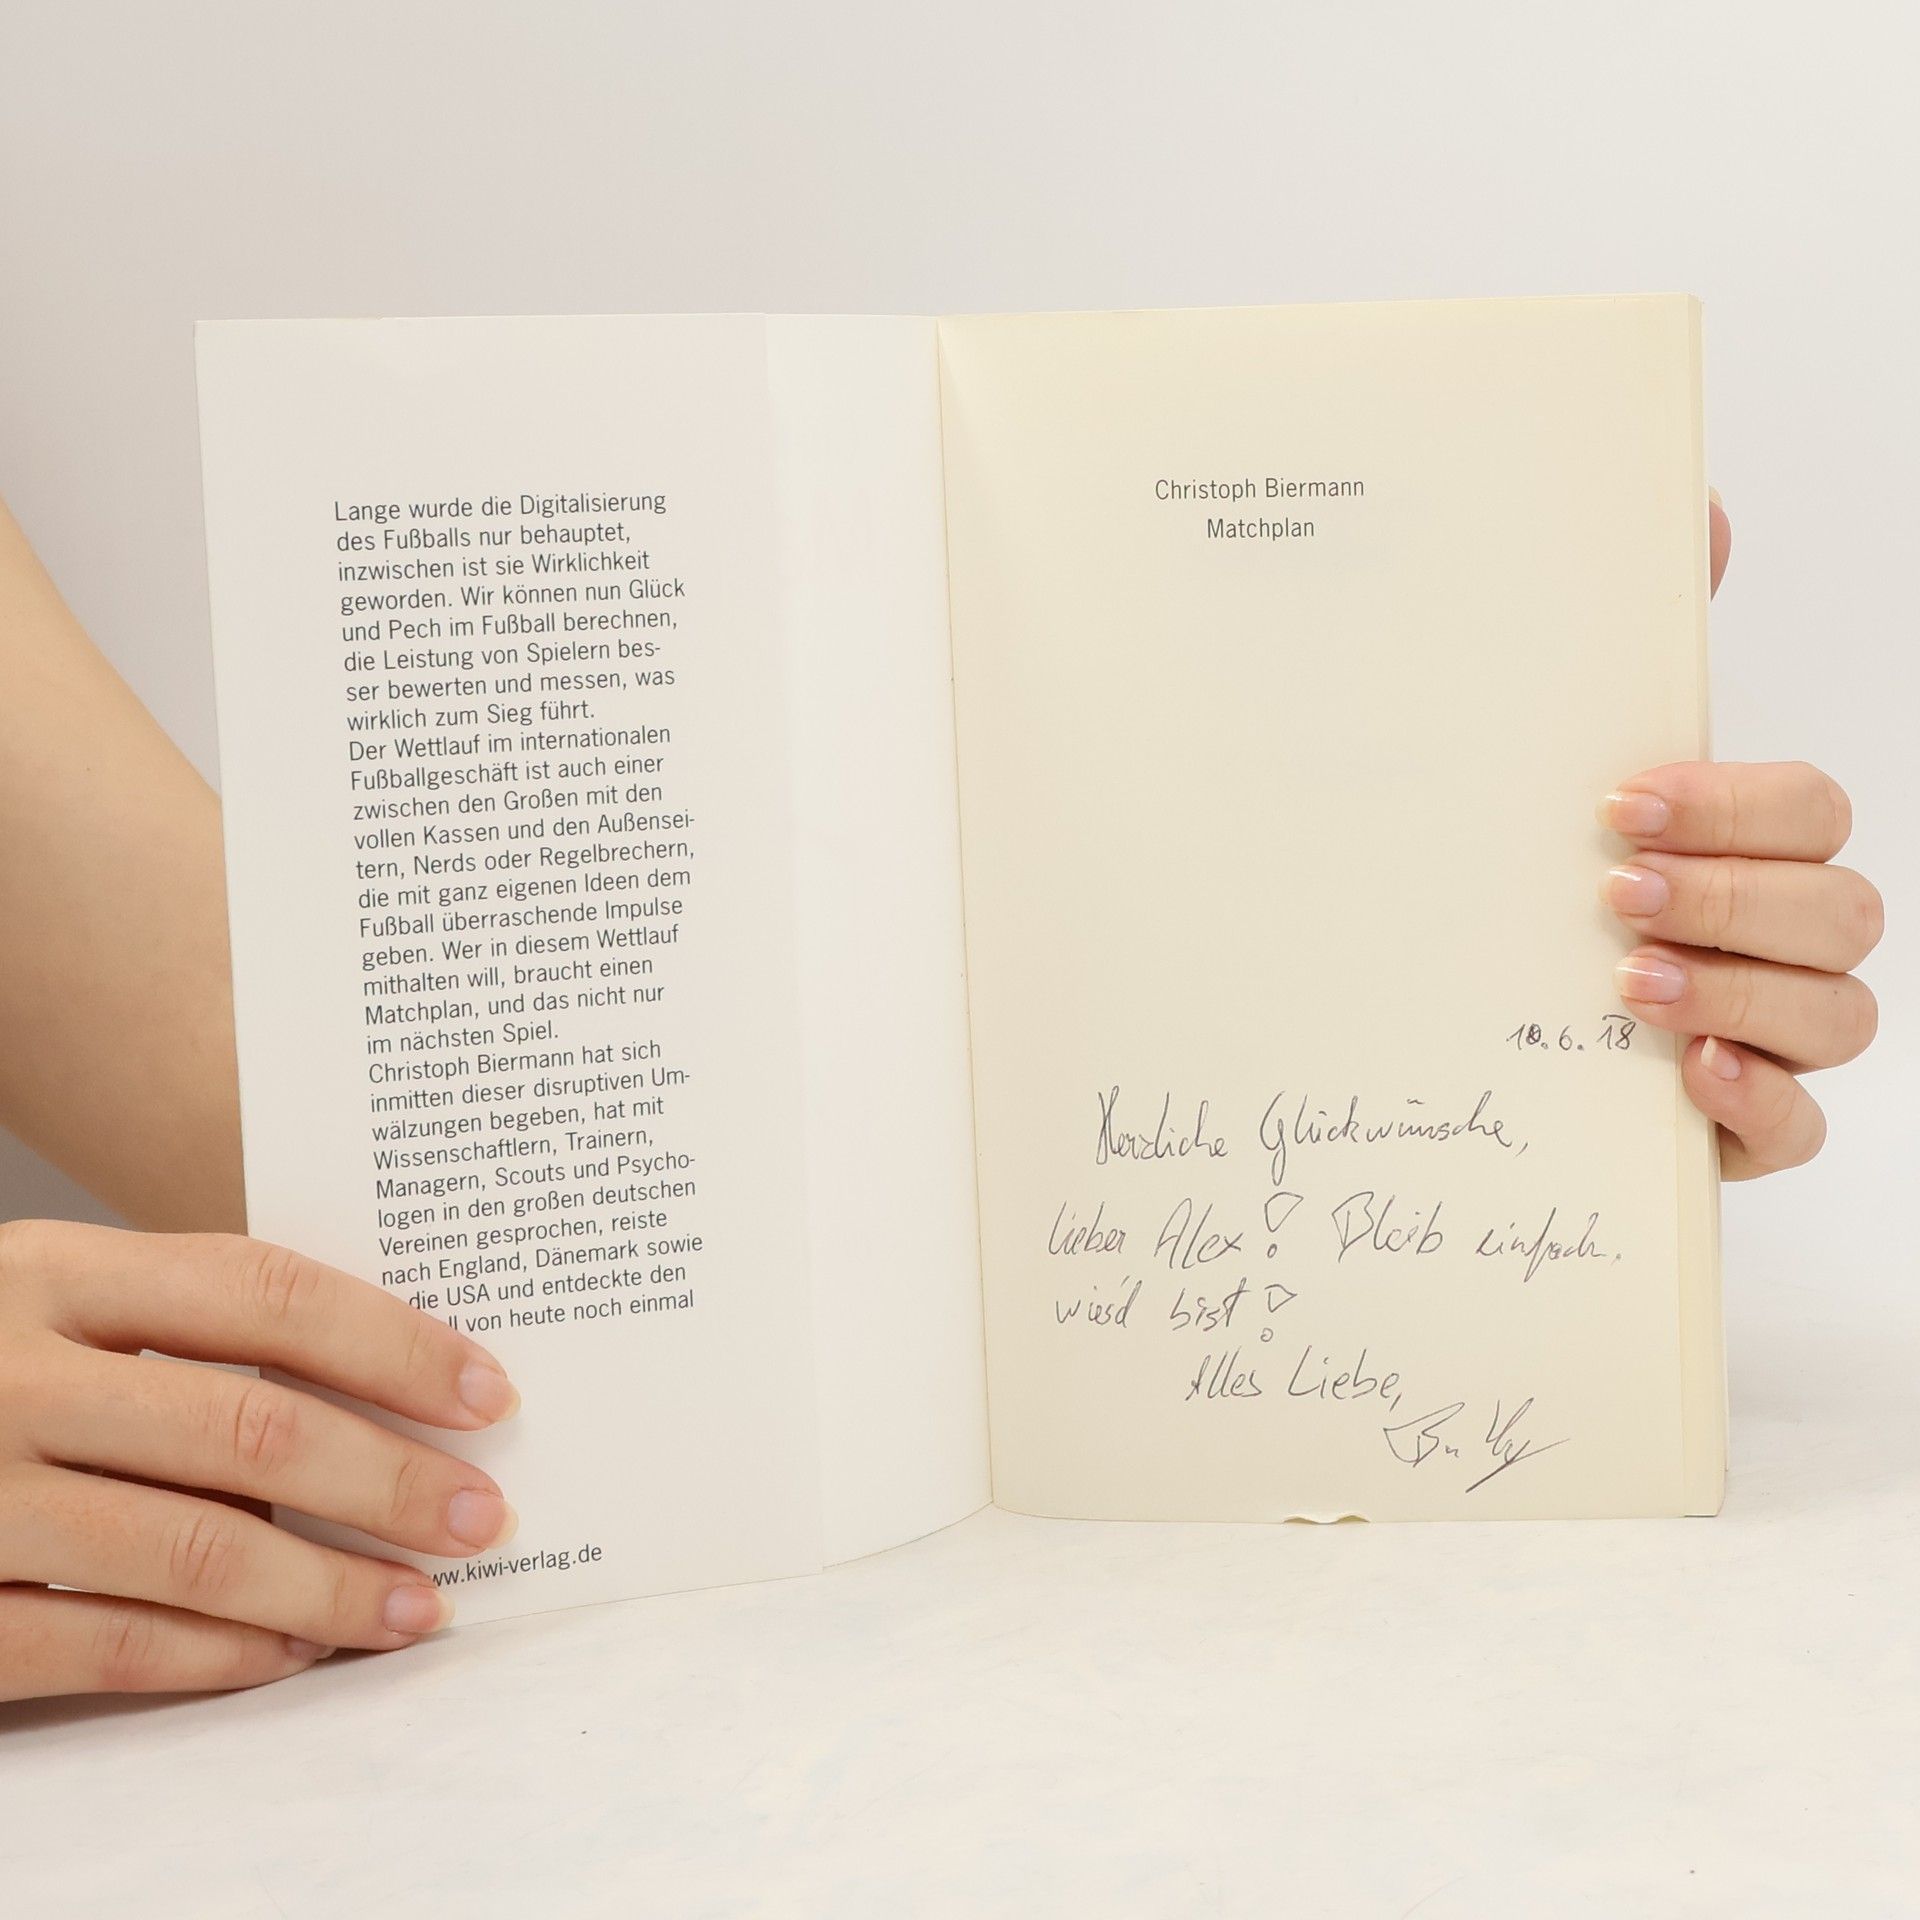 Lange wurde die Digitalisierung
des Fußballs nur behauptet,
inzwischen ist sie Wirklichkeit
geworden. Wir können nun Glück
und Pech im Fußball berechnen,
die Leistung von Spielern bes-
ser bewerten und messen, was
wirklich zum Sieg führt.
Der Wettlauf im internationalen
Fußballgeschäft ist auch einer
zwischen den Großen mit den
vollen Kassen und den Außensei-
tern, Nerds oder Regelbrechern,
die mit ganz eigenen Ideen dem
Fußball überraschende Impulse
geben. Wer in diesem Wettlauf
mithalten will, braucht einen
Matchplan, und das nicht nur
im nächsten Spiel.
Christoph Biermann hat sich
inmitten dieser disruptiven Um-
wälzungen begeben, hat mit
Wissenschaftlern, Trainern,
Managern, Scouts und Psycho-
logen in den großen deutschen
Vereinen gesprochen, reiste
nach England, Dänemark sowie
die USA und entdeckte den
ll von heute noch einmal
ww.kiwi-verlag.de
Christoph Biermann
Matchplan
10.6.18
Herzliche Glückwünsche,
lieber Alex! Bleib einfach
wies'd bist!
Alles Liebe,